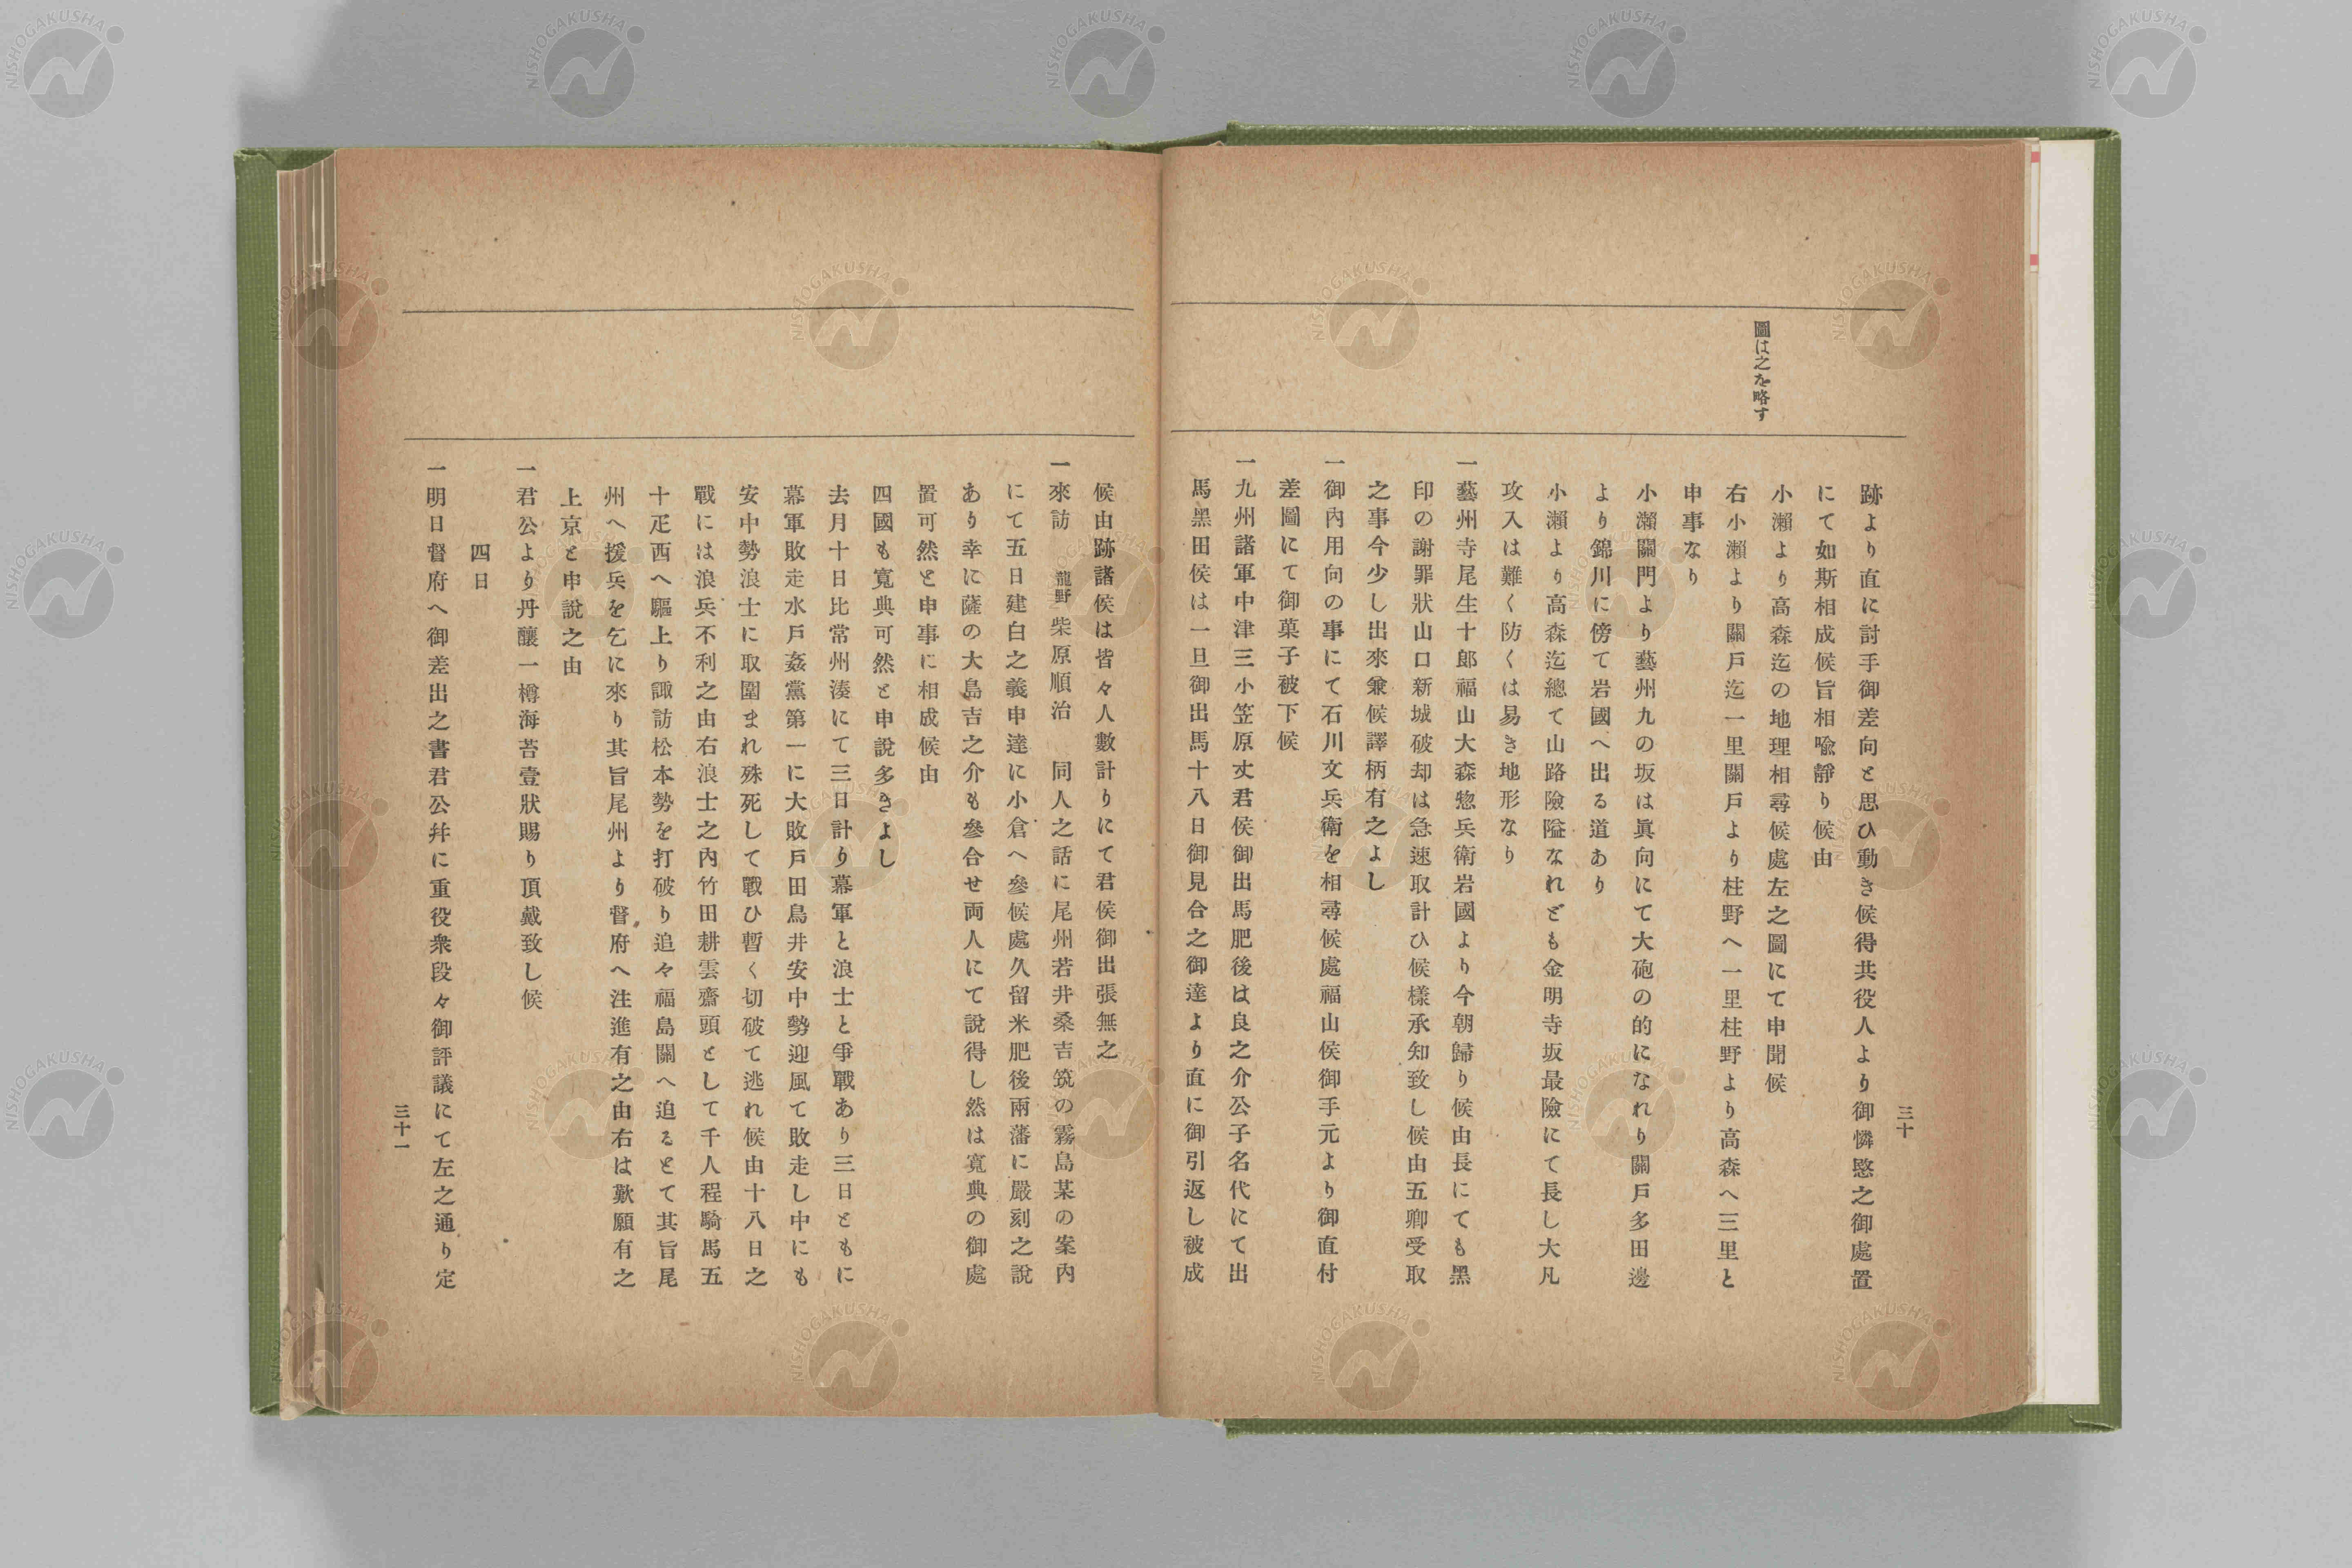 三十
圖は之を略す
跡より直に討手御差向と思ひ動き候得共役人より御憐愍之御處置
にて如斯相成候旨相喩靜り候由
小瀨より高森迄の地理相尋候處左之圖にて申聞候
右小瀨より關戸迄一里關戸より柱野へ一里柱野より高森へ三里と
申事なり
小瀨關門より藝州九の坂は眞向にて大砲の的になれり關戸多田邊
より錦川に傍て岩國へ出る道あり
小瀨より高森迄總て山路險隘なれども金明寺坂最險にて長し大凡
攻入は難く防くは易き地形なり
一藝州寺尾生十郎福山大森惣兵衛岩國より今朝歸り候由長にても黑
印の謝罪狀山口新城破却は急速取計ひ候樣承知致し候由五卿受取
之事今少し出來兼候譯柄有之よし
一御內用向の事にて石川文兵衛を相尋候處福山侯御手元より御直付
差圖にて御菓子被下候
一九州諸軍中津三小笠原丈君侯御出馬肥後は良之介公子名代にて出
馬黑田侯は一旦御出馬十八日御見合之御達より直に御引返し被成
候由跡諸侯は皆々人數計りにて君侯御出張無之
一來訪 龍野 柴原順治 同人之話に尾州若井桑吉筑の霧島某の案內
にて五日建白之義申達に小倉へ參候處久留米肥後兩藩に嚴刻之說
あり幸に薩の大島吉之介も參合せ両人にて說得し然は寬典の御處
置可然と申事に相成候由
四國も寬典可然と申說多きよし
去月十日比常州湊にて三日計り幕軍と浪士と爭戰あり三日ともに
幕軍敗走水戸姦黨第一に大敗戸田鳥井安中勢迎風て敗走し中にも
安中勢浪士に取圍まれ殊死して戰ひ暫く切破て逃れ候由十八日之
戰には浪兵不利之由右浪士之內竹田耕雲齋頭として千人程騎馬五
十疋西へ驅上り諏訪松本勢を打破り追々福島關へ迫るとて其旨尾
州へ援兵を乞に來り其旨尾州より督府へ注進有之由右は歎願有之
上京と申說之由
一君公より丹釀一樽海苔壹狀賜り頂戴致し候
四日
一明日督府へ御差出之書君公幷に重役衆段々御評議にて左之通り定
三十一